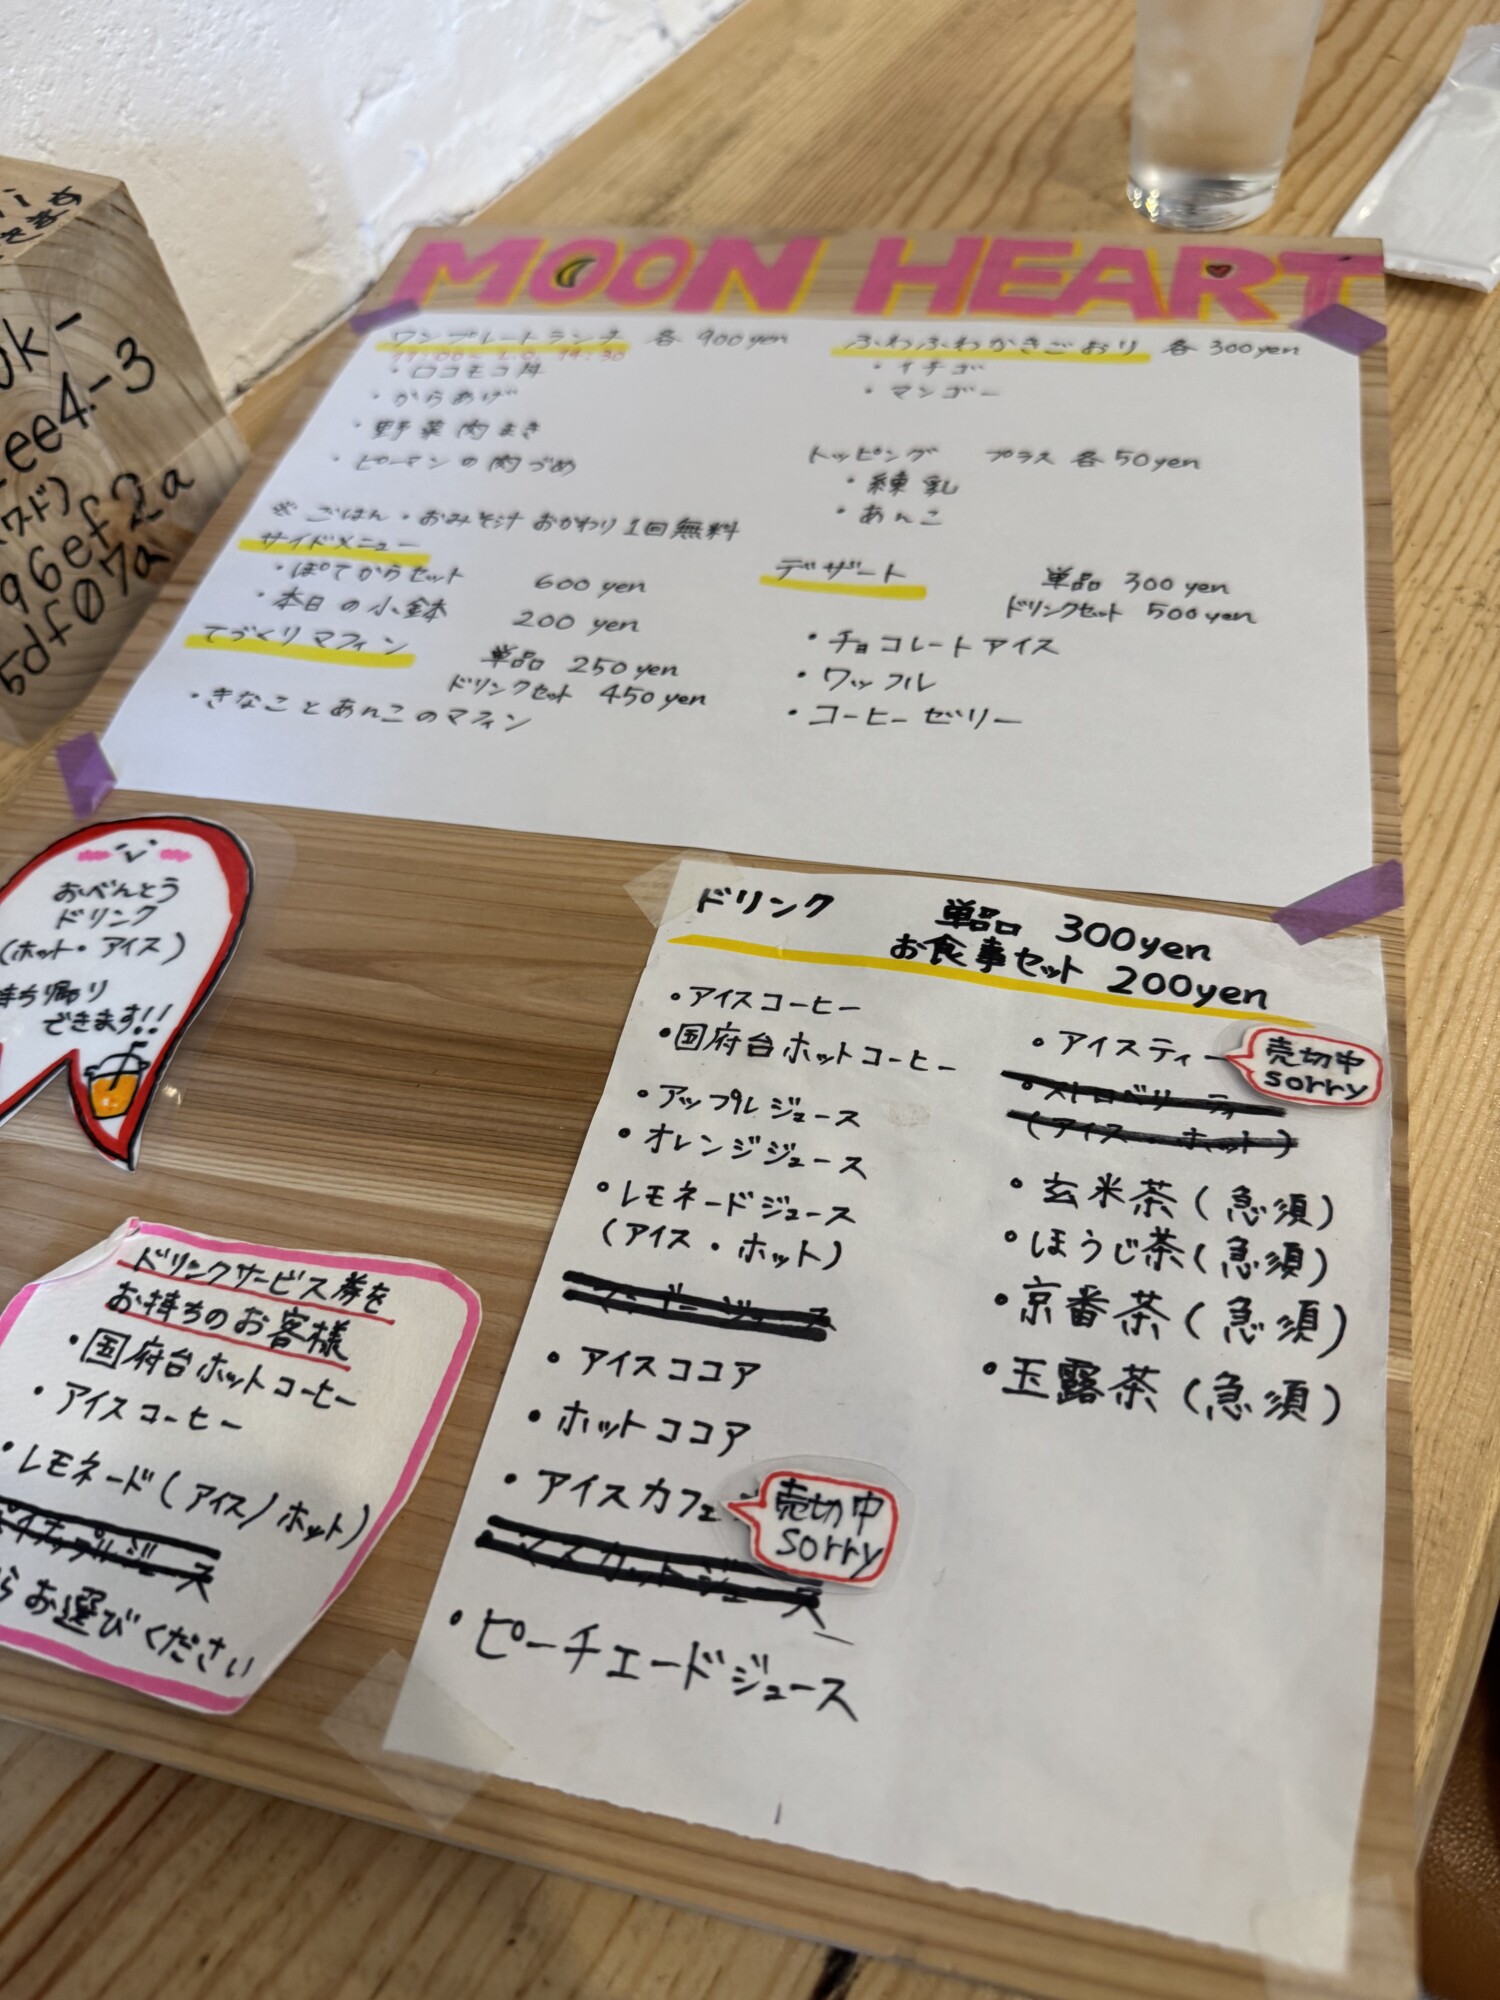 MOON HEART
ワンプレートランチ 各 900yen
11:00~ L.O. 14:30
・ロコモコ丼
・からあげ
・野菜肉まき
・ピーマンの肉づめ
※ごはん・おみそ汁 おかわり1回無料
サイドメニュー
・ぽてからセット 600yen
・本日の小鉢 200yen
てづくりマフィン 単品 250yen
ドリンクセット 450yen
・きなことあんこのマフィン
ふわふわかきごおり 各300yen
・イチゴ
・マンゴー
トッピング プラス 各50yen
・練乳
・あんこ
デザート 単品 300yen
ドリンクセット 500yen
・チョコレートアイス
・ワッフル
・コーヒーゼリー
ok-
ee4-3
96ef2a
5df07a
おべんとう
ドリンク
(ホット・アイス)
持ち帰り
できます!!
ドリンクサービス券を
お持ちのお客様
・国府台ホットコーヒー
・アイスコーヒー
・レモネード(アイス/ホット)
らお選びください
ドリンク 単品 300yen
お食事セット 200yen
・アイスコーヒー
・国府台ホットコーヒー
・アップルジュース
・オレンジジュース
・レモネードジュース
(アイス・ホット)
・アイスココア
・ホットココア
・アイスカフェ
売切中
sorry
マスカットジュース
・ピーチエードジュース
・アイスティー
売切中
sorry
・ストロベリーティー
(アイス・ホット)
・玄米茶(急須)
・ほうじ茶(急須)
・京番茶(急須)
・玉露茶(急須)